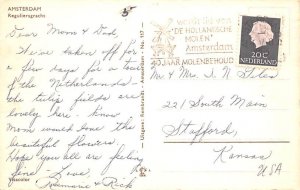 AMSTERDAM
Reguliersgracht
Dear Mom & Dad,
We've taken off for
a few days for a tour
of the Netherlands -
the tulip fields are
lovely here. Know
Mom would love the
beautiful flowers.
Hope you all are feeling
fine - Love,
& Rick
"DE HOLLANDSCHE
MOLEN"
Amsterdam
JAAR MOLENBEHOUD
20 C
NEDERLAND
Mr. & Mrs. I. N. Stiles
221 South Main
Stafford,
Kansas
USA
Uitgave: Rembrandt - Amsterdam - No. 117